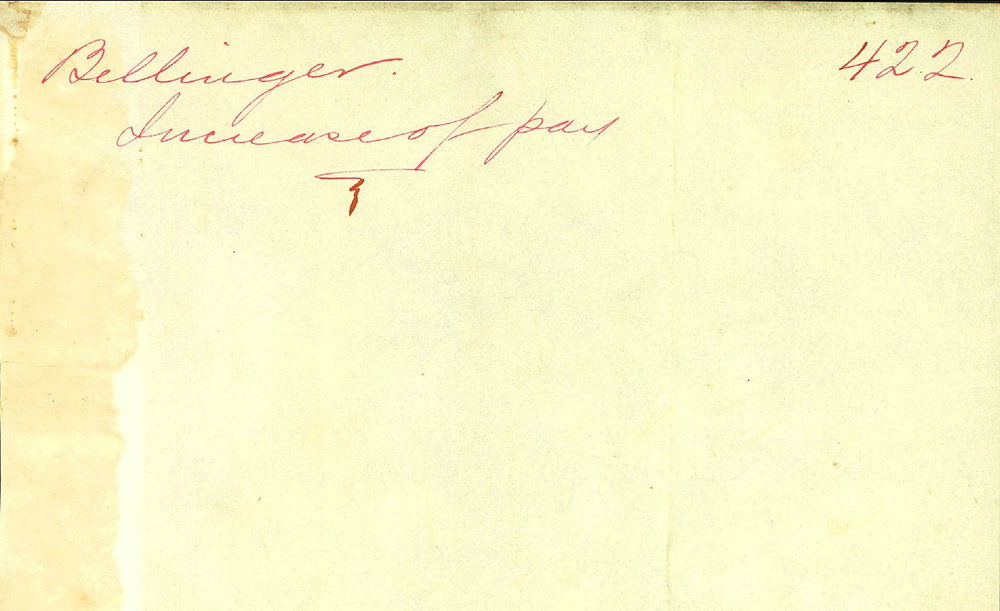 Bellinger. 422.
Increase of pay